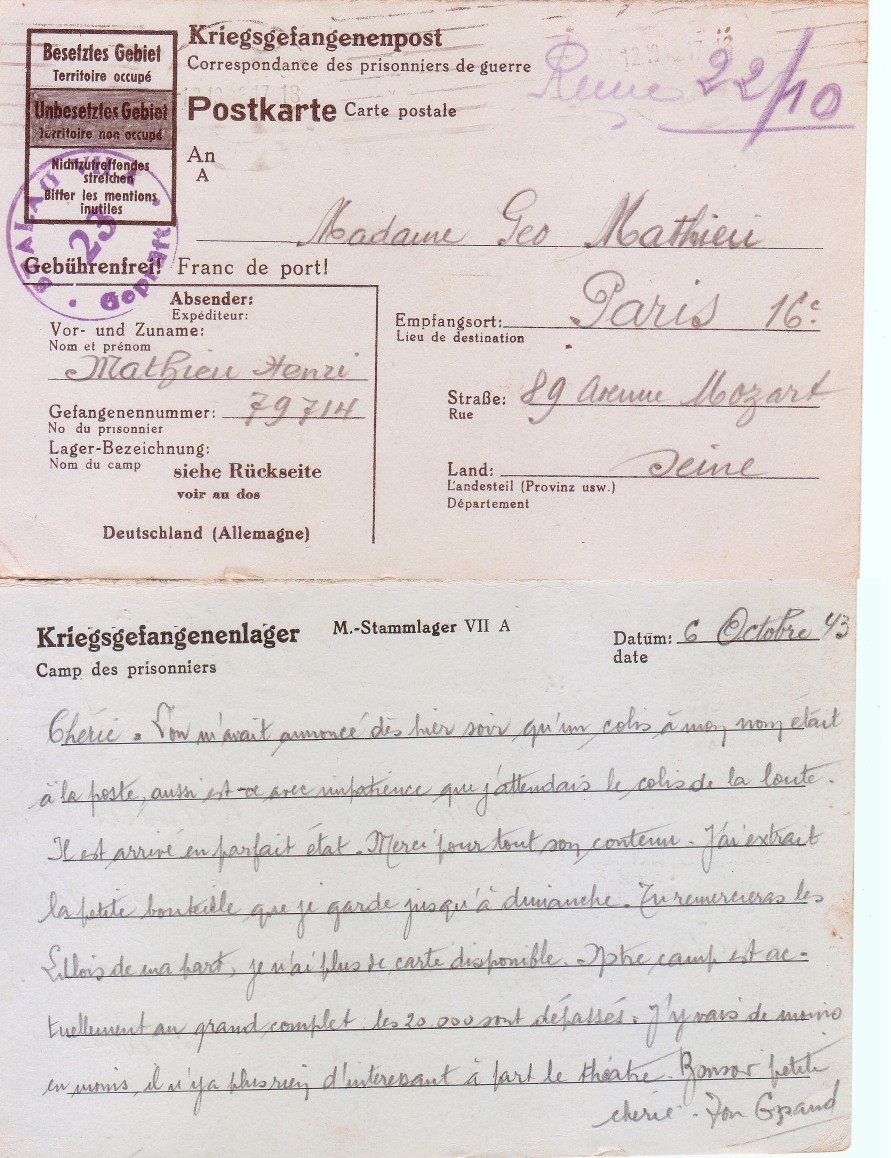 Besetztes Gebiet
Territoire occupé
Unbesetztes Gebiet
Territoire non occupé
Nichtzutreffendes
streichen
Biffer les mentions
inutiles
STALAG VII A
23
Geprüft
Kriegsgefangenenpost
Correspondance des prisonniers de guerre
22/10
Postkarte Carte postale
An
A
Madame Geo Mathieu
Gebührenfrei! Franc de port!
Absender:
Expéditeur:
Vor- und Zuname:
Nom et prénom
Mathieu Henri
Gefangenennummer: 79714
No du prisonnier
Lager-Bezeichnung:
Nom du camp
siehe Rückseite
voir au dos
Deutschland (Allemagne)
Empfangsort: Paris 16e
Lieu de destination
Straße: 89 Avenue Mozart
Rue
Land: Seine
Landesteil (Provinz usw.)
Département
Kriegsgefangenenlager M.-Stammlager VII A Datum: 6 Octobre 43
Camp des prisonniers date
Chérie. L'on m'avait annoncé dès hier soir qu'un colis à mon nom était
à la poste, aussi est-ce avec impatience que j'attendais le colis de la
Il est arrivé en parfait état. Merci pour tout son contenu. J'ai extrait
la petite bouteille que je garde jusqu'à dimanche. Tu remercieras les
Lillois de ma part, je n'ai plus de carte disponible. Notre camp est ac-
tuellement au grand complet les 20 000 sont dépassés. J'y vais de moins
en moins, il n'y a plus rien d'interessant à part le théatre. Bonsoir petite
cherie. Ton Grand